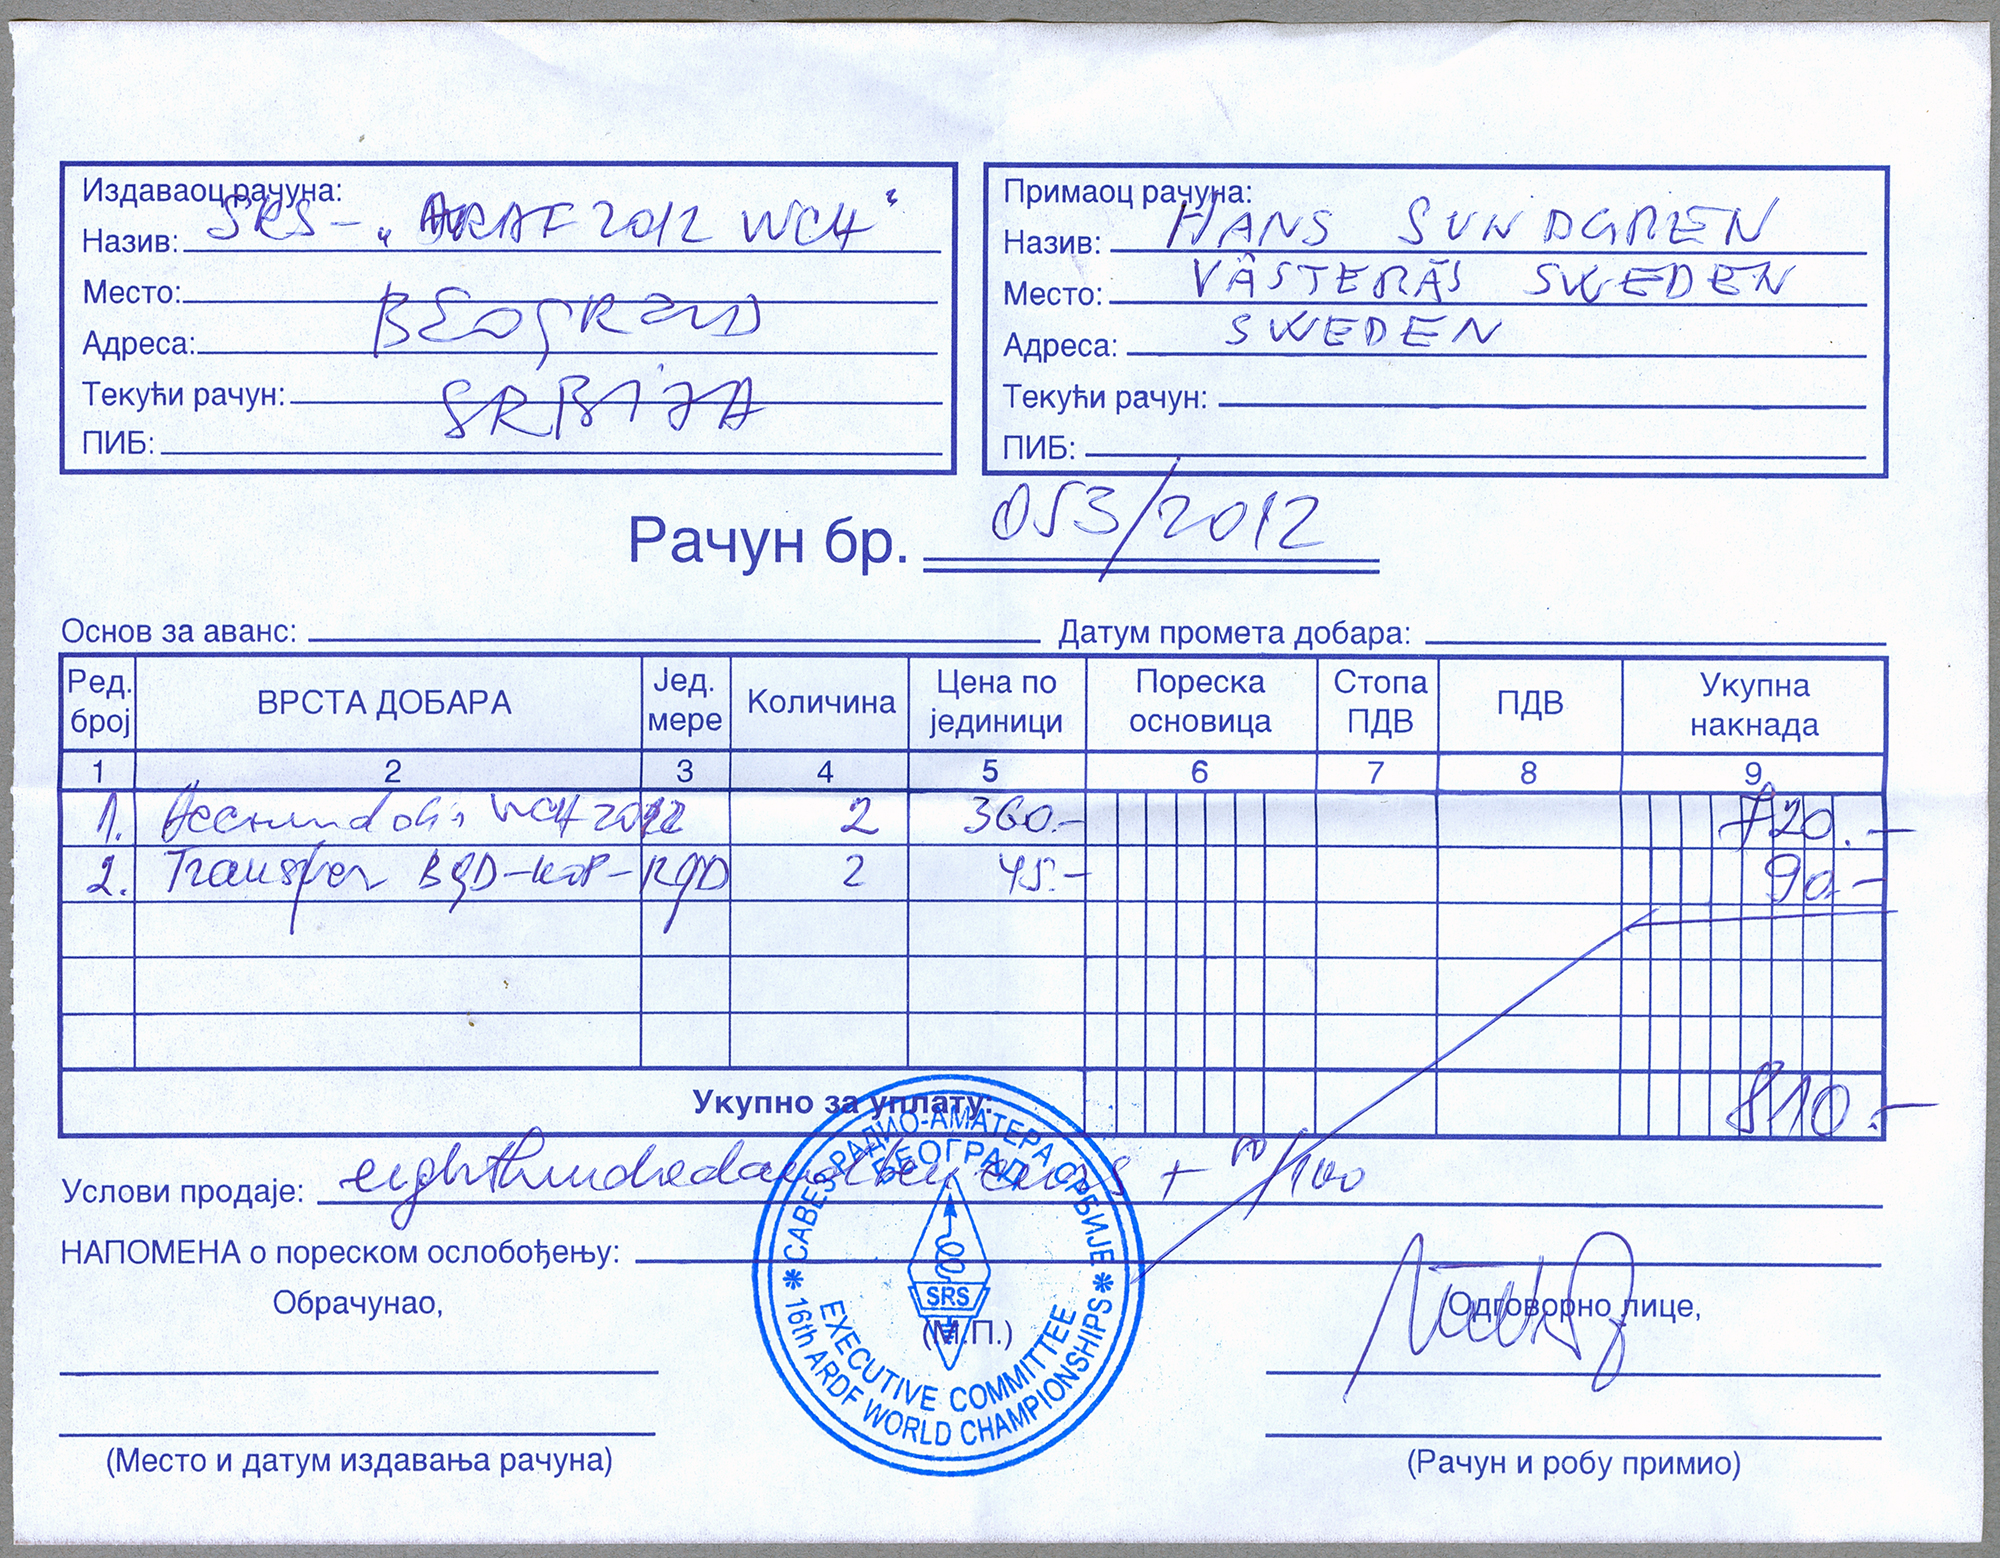 Издаваоц рачуна:
Назив: SRS - „ ARDF 2012 WCH "
Место:
BEOGRAD
Адреса:
Текући рачун: SRBIJA
ПИБ:
Примаоц рачуна:
Назив: HANS SUNDGREN
Место: VÄSTERÅS SWEDEN
Адреса: SWEDEN
Текући рачун:
ПИБ:
Рачун бр. 053/2012
Основ за аванс: Датум промета добара:
Ред. број ВРСТА ДОБАРА Јед. мере Количина Цена по јединици Пореска основица Стопа ПДВ ПДВ Укупна накнада
1 2 3 4 5 6 7 8 9
1. WCH 2012 2 360.- 720.-
2. Transfer BGD- 2 45.- 90.-
Укупно за уплату: 810.-
Услови продаје: +  /100
НАПОМЕНА о пореском ослобођењу:
Обрачунао,
(М.П.)
Одговорно лице,
(Место и датум издавања рачуна)
(Рачун и робу примио)
САВЕЗ РАДИО-АМАТЕРА СРБИЈЕ
БЕОГРАД
SRS
EXECUTIVE COMMITTEE
16th ARDF WORLD CHAMPIONSHIPS